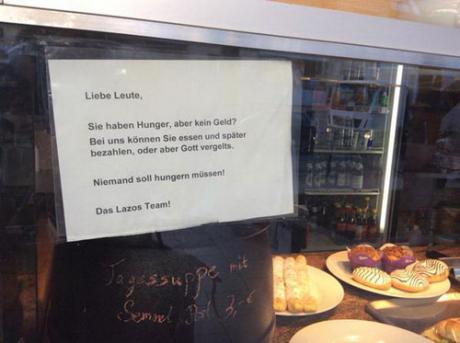 Liebe Leute,
Sie haben Hunger, aber kein Geld?
Bei uns können Sie essen und später
bezahlen, oder aber Gott vergelts.
Niemand soll hungern müssen!
Das Lazos Team!
Tagessuppe mit
Semmel 3,-€